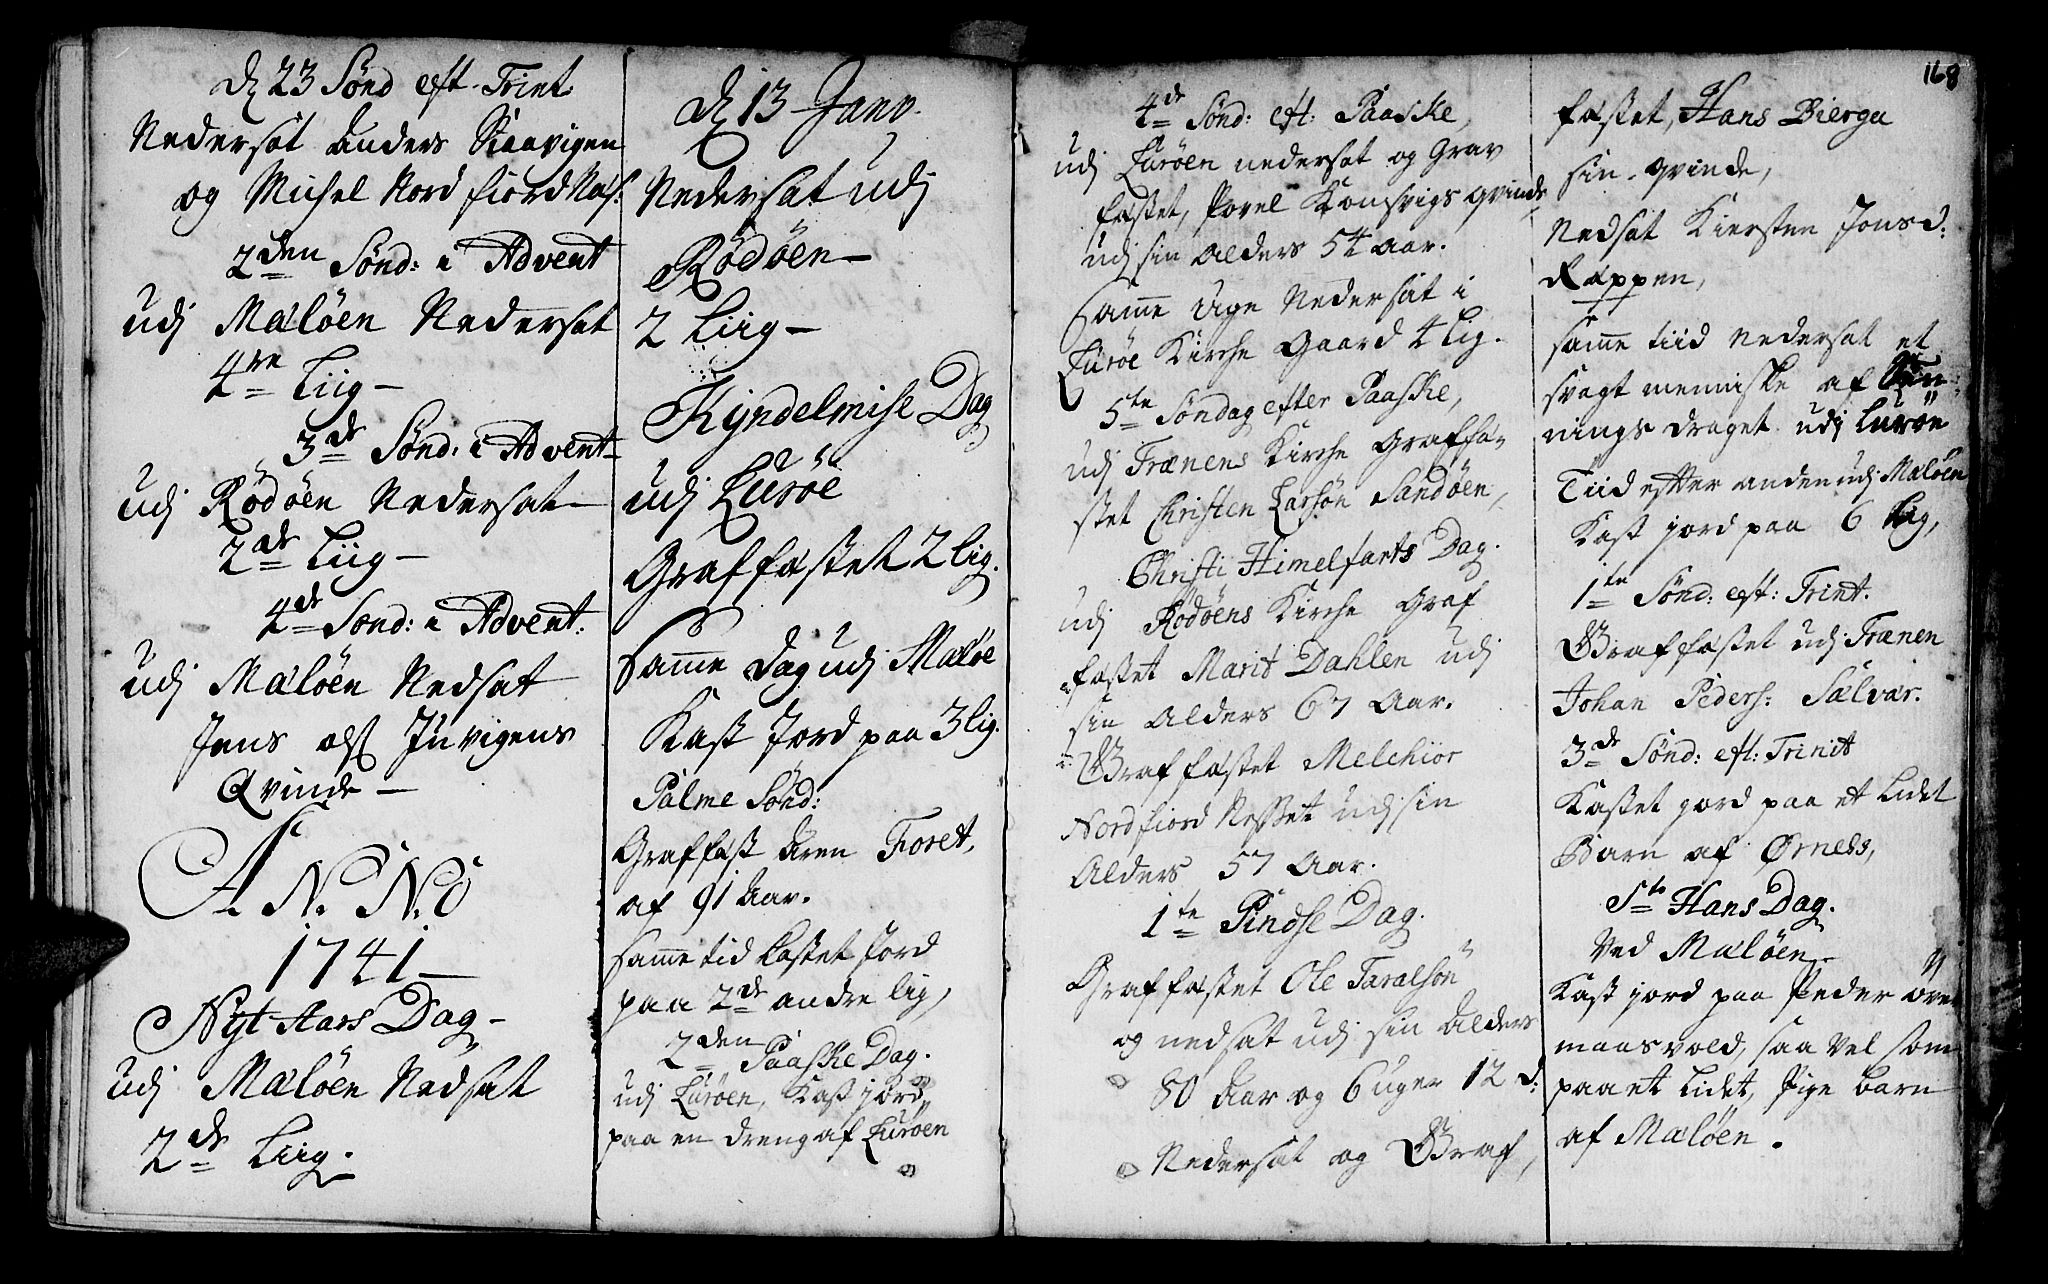 d 23 Sønd eft. Trint.
Nedersat Anders Staavigen
og Michel Nordfiord Næs.
2den Sønd: i Advent
udj Mæløen Nedersat
4re Liig
3de Sønd: i Advent
udj Rödöen Nedersat
2de Liig
4de Sønd: i Advent.
udj Mæløen Nedsat
Jens
Qvinde
ANNO
1741
Nyt Aars Dag
udj Mæløen Nedsat
2de Liig.
d 13 Janv.
Nedersat udj
Rödöen
2 Liig
Kyndelmise Dag
udj Lurøe
Graffæstet 2 lig.
Samme Dag udj Mæløe
Kast Jord paa 3 lig.
Palme Sønd:
Graffæst Aren Foret,
af 91 Aar.
Samme tid kastet Jord
paa 2de andre lig,
2den Paaske Dag.
udj Lurøen, Kast jord
paa en dreng af Lurøen
168
4de Sønd: eft: Paaske,
udj Lurøen nedersat og Grav
fæstet, Povel Konsvigs qvinde
udj sin Alders 54 Aar.
Same Uge Nedersat i
Lurøe Kirche Gaard 4 lig.
5te Søndag efter Paaske,
udj Trænens Kirche Graffæ-
stet Christen Larsøn Sandøen,
Christi Himelfarts Dag.
udj Rödöens Kirche Graf
fæstet Marit Dahlen udj
sin Alders 67 Aar.
Graffæstet Melchior
Nordfiord Nesset udj sin
Alders 57 Aar.
1te Pindse Dag.
Graffæstet Ole Taralsøn
og nedsat udj sin Alders
80 Aar og 6 uger 12 d:
Nedersat og Graf,
fæstet, Hans Bierga
sin qvinde,
Nedsat Kiersten Jonsd:
Ræppen,
samme tiid Nedersat et
svagt menniske af
nings draget udj Lurøe
Tiid efter anden udj Mæløen
Kast jord paa 6 lig,
1te Sønd: eft: Trint.
Graffæstet udj Trænen
Johan Peders: Sælvær.
3de Sønd: eft: Trinit
Kastet jord paa et lidet
Barn af Ørness,
Ste Hans Dag.
Ved Mæløen
Kast jord paa Peder Øve
maasvold, saa vel som
paa et lidet, Pige barn
af Mæløen.